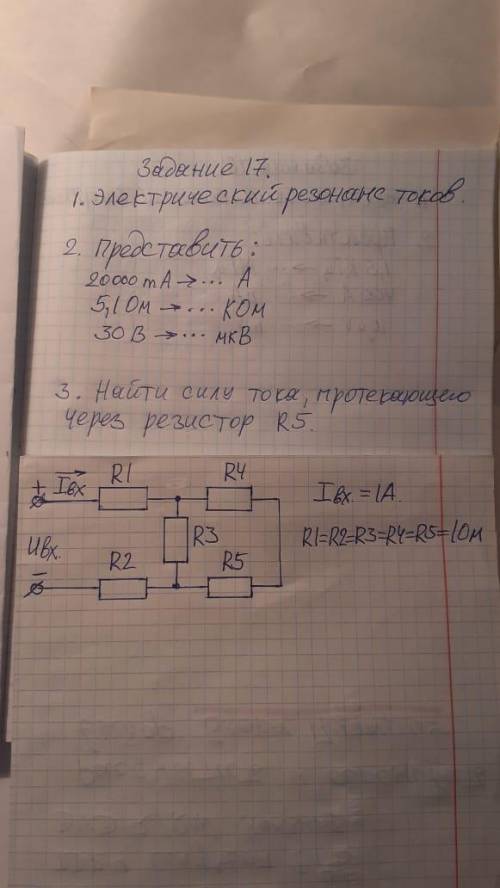 Задание 17.
1. Электрический резонанс токов.
2. Представить:
20000 mA → ... А
5,1 Ом → ... КОм
30 В → ... мкВ
3. Найти силу тока, протекающего
через резистор R5.
+ Iвх R1 R4
Iвх. = 1А.
R3
R1=R2=R3=R4=R5=1Ом
Uвх.
− R2 R5